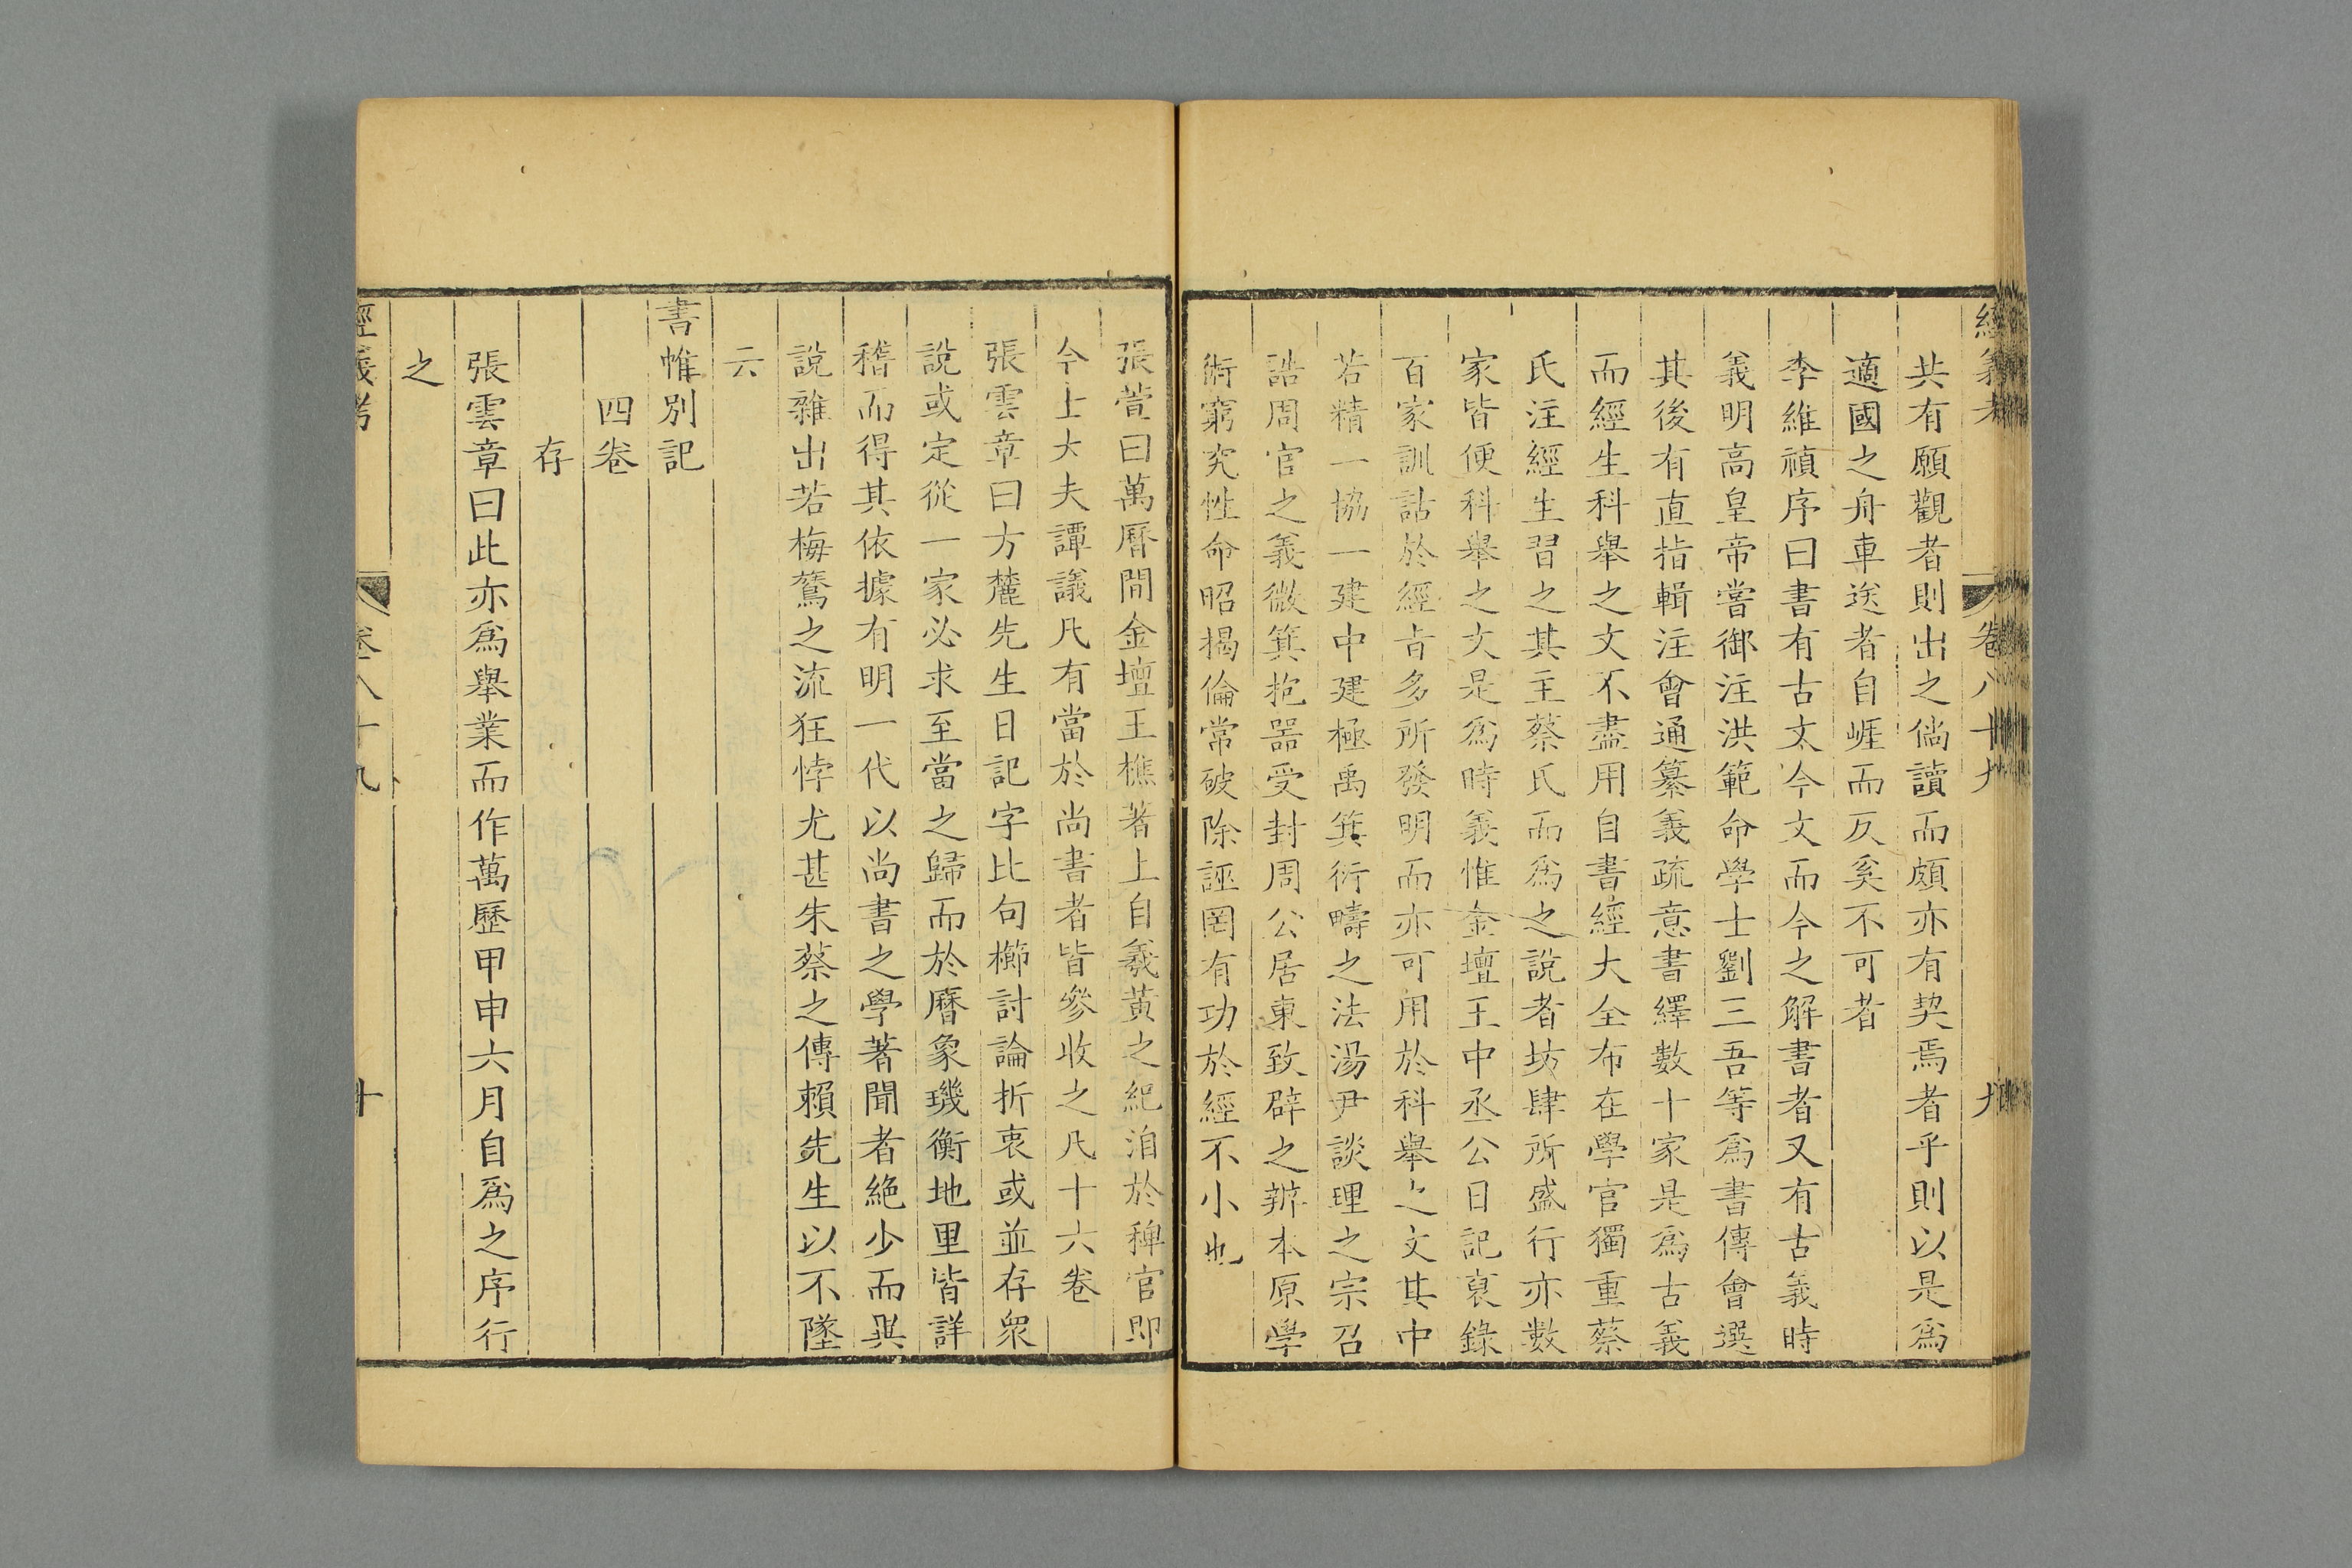 經義考 卷八十九 九
共有願觀者則出之倘讀而頗亦有契焉者乎則以是爲
適國之舟車送者自崕而反奚不可者
李維禎序曰書有古文今文而今之解書者又有古義時
義明高皇帝嘗御注洪範命學士劉三吾等爲書傳會選
其後有直指輯注會通纂義疏意書繹數十家是爲古義
而經生科舉之文不盡用自書經大全布在學官獨重蔡
氏注經生習之其主蔡氏而爲之說者坊肆所盛行亦數
家皆便科舉之文是爲時義惟金壇王中丞公日記裒錄
百家訓詁於經旨多所發明而亦可用於科舉之文其中
若精一協一建中建極禹箕衍疇之法湯尹談理之宗召
誥周官之義微箕抱噐受封周公居東致辟之辨本原學
術窮究性命昭揭倫常破除誣罔有功於經不小也
張萱曰萬曆間金壇王樵著上自羲黃之紀洎於稗官即
今上大夫譚議凡有當於尚書者皆參收之凡十六卷
張雲章曰方麓先生日記字比句櫛討論折衷或並存衆
說或定從一家必求至當之歸而於曆象璣衡地里皆詳
稽而得其依據有明一代以尚書之學著聞者絶少而異
說雜出若梅鷟之流狂悖尤甚朱蔡之傳賴先生以不墜
云
書帷別記
四卷
存
張雲章曰此亦爲舉業而作萬歷甲申六月自爲之序行
之
經義考 卷八十九 十